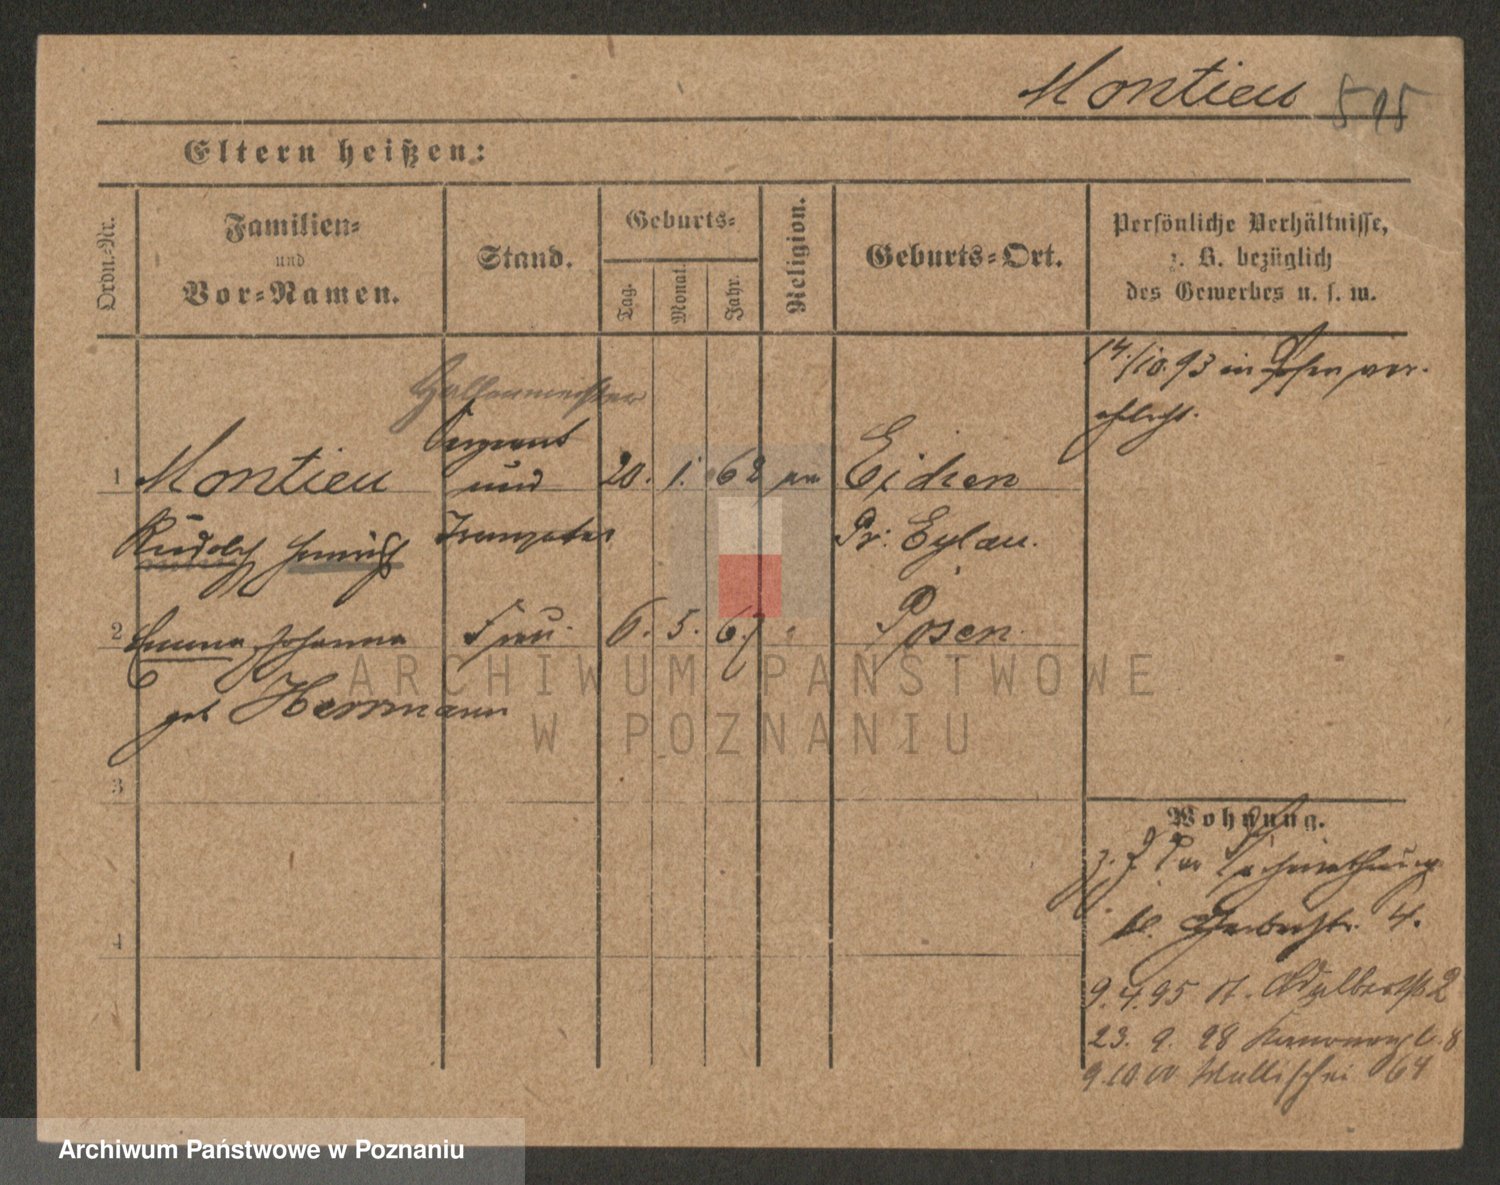 Montieu 595
Eltern heißen:
Ordn.-Nr.
Familien-
und
Vor-Namen.
Stand.
Geburts-
Tag.
Monat.
Jahr.
Religion.
Geburts-Ort.
Persönliche Verhältnisse,
z. B. bezüglich
des Gewerbes u. s. w.
14./10.93 in Posen ver-
ehelicht.
Hallenmeister
Sergeant
1 Montieu und 20. 1. 62 ev Eichen
Rudolf Heinrich Trompeter Pr. Eylau.
2 Emma Johanna Frau 6. 5. 67 " Posen
geb Herrmann
ARCHIWUM PAŃSTWOWE
W POZNANIU
3
4
Wohnung.
z. Z. der
Kl. Gerberstr. 4.
9.4.95 St. Adalbertstr 2
23. 9. 98 Kanonenpl. 8
9.10.00 Wallischei 64
Archiwum Państwowe w Poznaniu